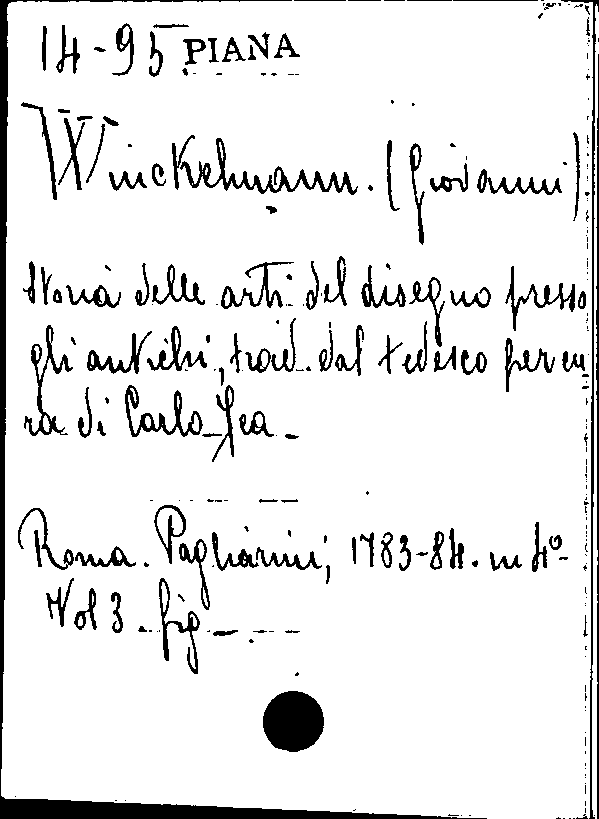 14-95 PIANA
Winckelmann. (Giovanni)
Storia delle arti del disegno presso
gli antichi, trad. dal tedesco per cu
ra di Carlo Fea -
Roma. Pagliarini, 1783-84. in 4º-
Vol 3. fig -